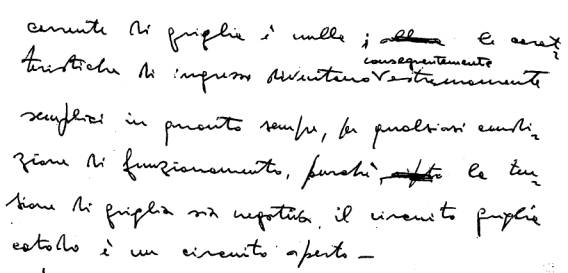 corrente di griglia è nulla ; le carat-
teristiche di ingresso diventano consequentemente estremamente
semplici in quanto sempre, per qualsiasi condi-
zione di funzionamento, purché, la ten-
sione di griglia sia negativa, il circuito griglia
catodo è un circuito aperto -